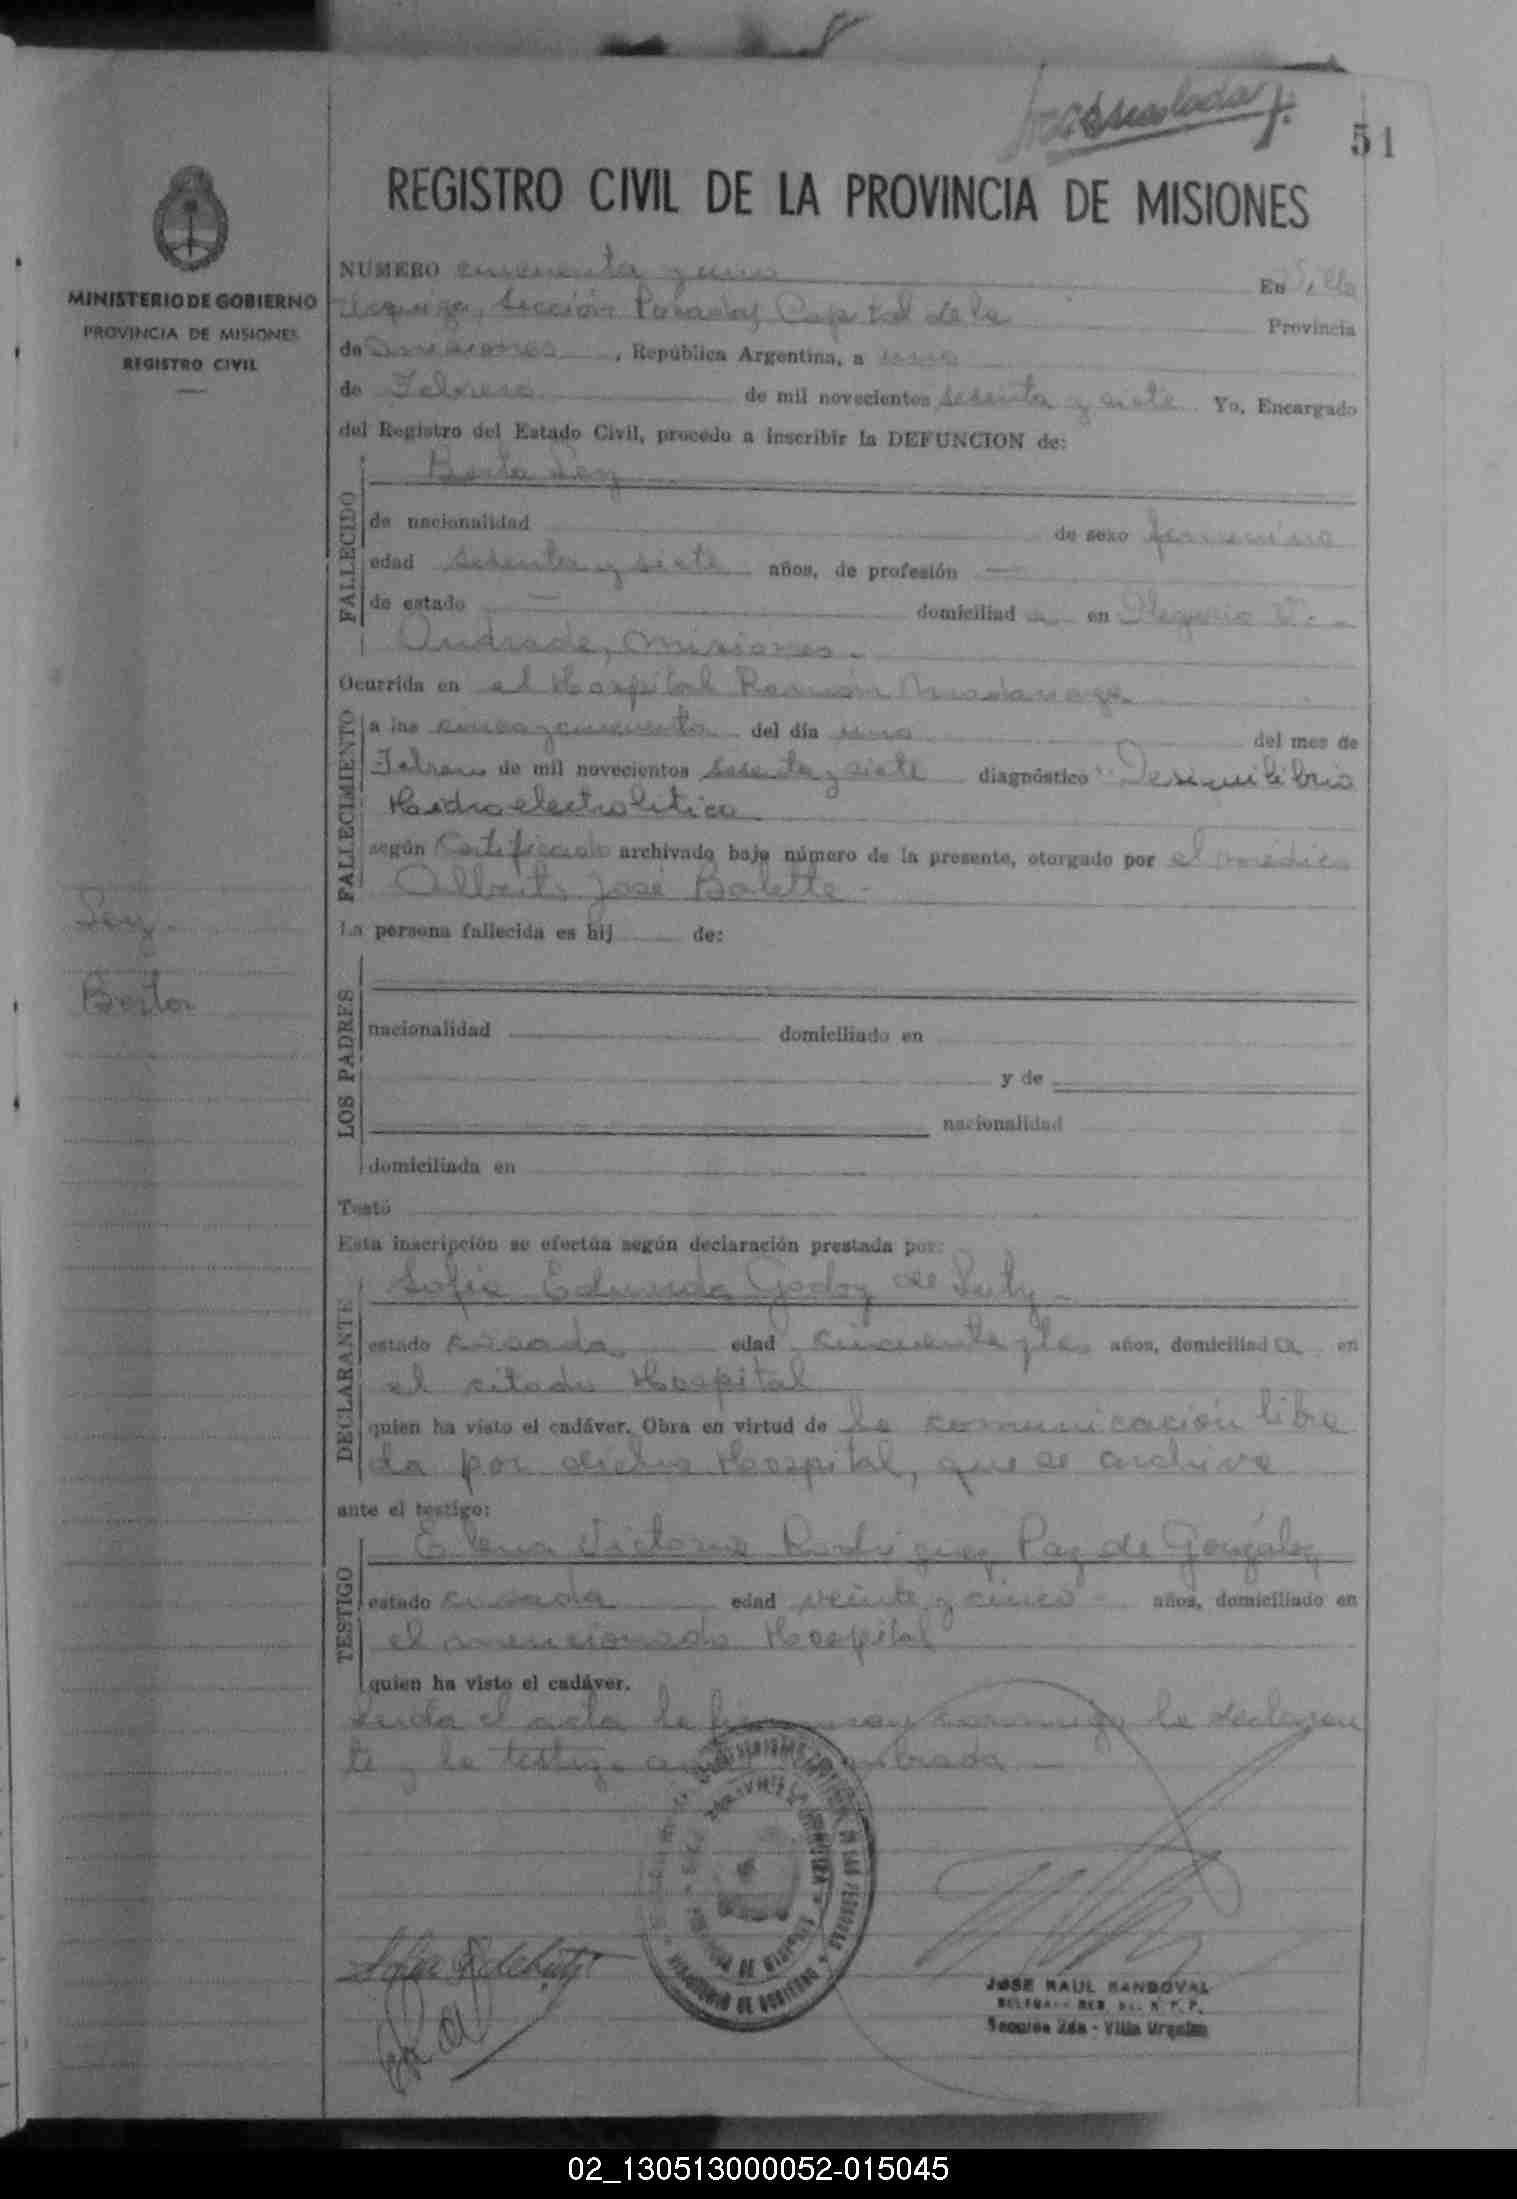 51
REGISTRO CIVIL DE LA PROVINCIA DE MISIONES
MINISTERIO DE GOBIERNO
PROVINCIA DE MISIONES
REGISTRO CIVIL
NUMERO cincuenta y uno En Villa
Urquiza, Sección Posadas Capital de la Provincia
de Misiones, República Argentina, a uno
de Febrero de mil novecientos sesenta y siete Yo, Encargado
del Registro del Estado Civil, procedo a inscribir la DEFUNCION de:
FALLECIDO
Berta
de nacionalidad de sexo femenino
edad sesenta y siete años, de profesión —
de estado — domiciliad a en Olegario V.
Andrade, Misiones.
Ocurrida en el Hospital Ramón Madariaga
FALLECIMIENTO
a las cinco y cincuenta del día uno del mes de
Febrero de mil novecientos sesenta y siete diagnóstico: Desequilibrio
Hidroelectrolitico
según Certificado archivado bajo número de la presente, otorgado por el médico
Alberto José
Berta
La persona fallecida es hij de:
LOS PADRES
nacionalidad domiciliado en
y de
nacionalidad
domiciliada en
Testó
Esta inscripción se efectúa según declaración prestada por:
DECLARANTE
Sofia Eduarda Godoy de
estado casada edad cincuenta y tres años, domiciliad a en
el citado Hospital
quien ha visto el cadáver. Obra en virtud de la comunicación libra
da por dicho Hospital, que se archiva
ante el testigo:
TESTIGO
Elena Victoria Rodriguez Paz de González
estado casada edad veinte y cinco años, domiciliado en
el mencionado Hospital
quien ha visto el cadáver.
Leida el acta la firman conmigo la declaran
te y la testigo
JOSE RAUL SANDOVAL
Sección 2da - Villa Urquiza
02_130513000052-015045